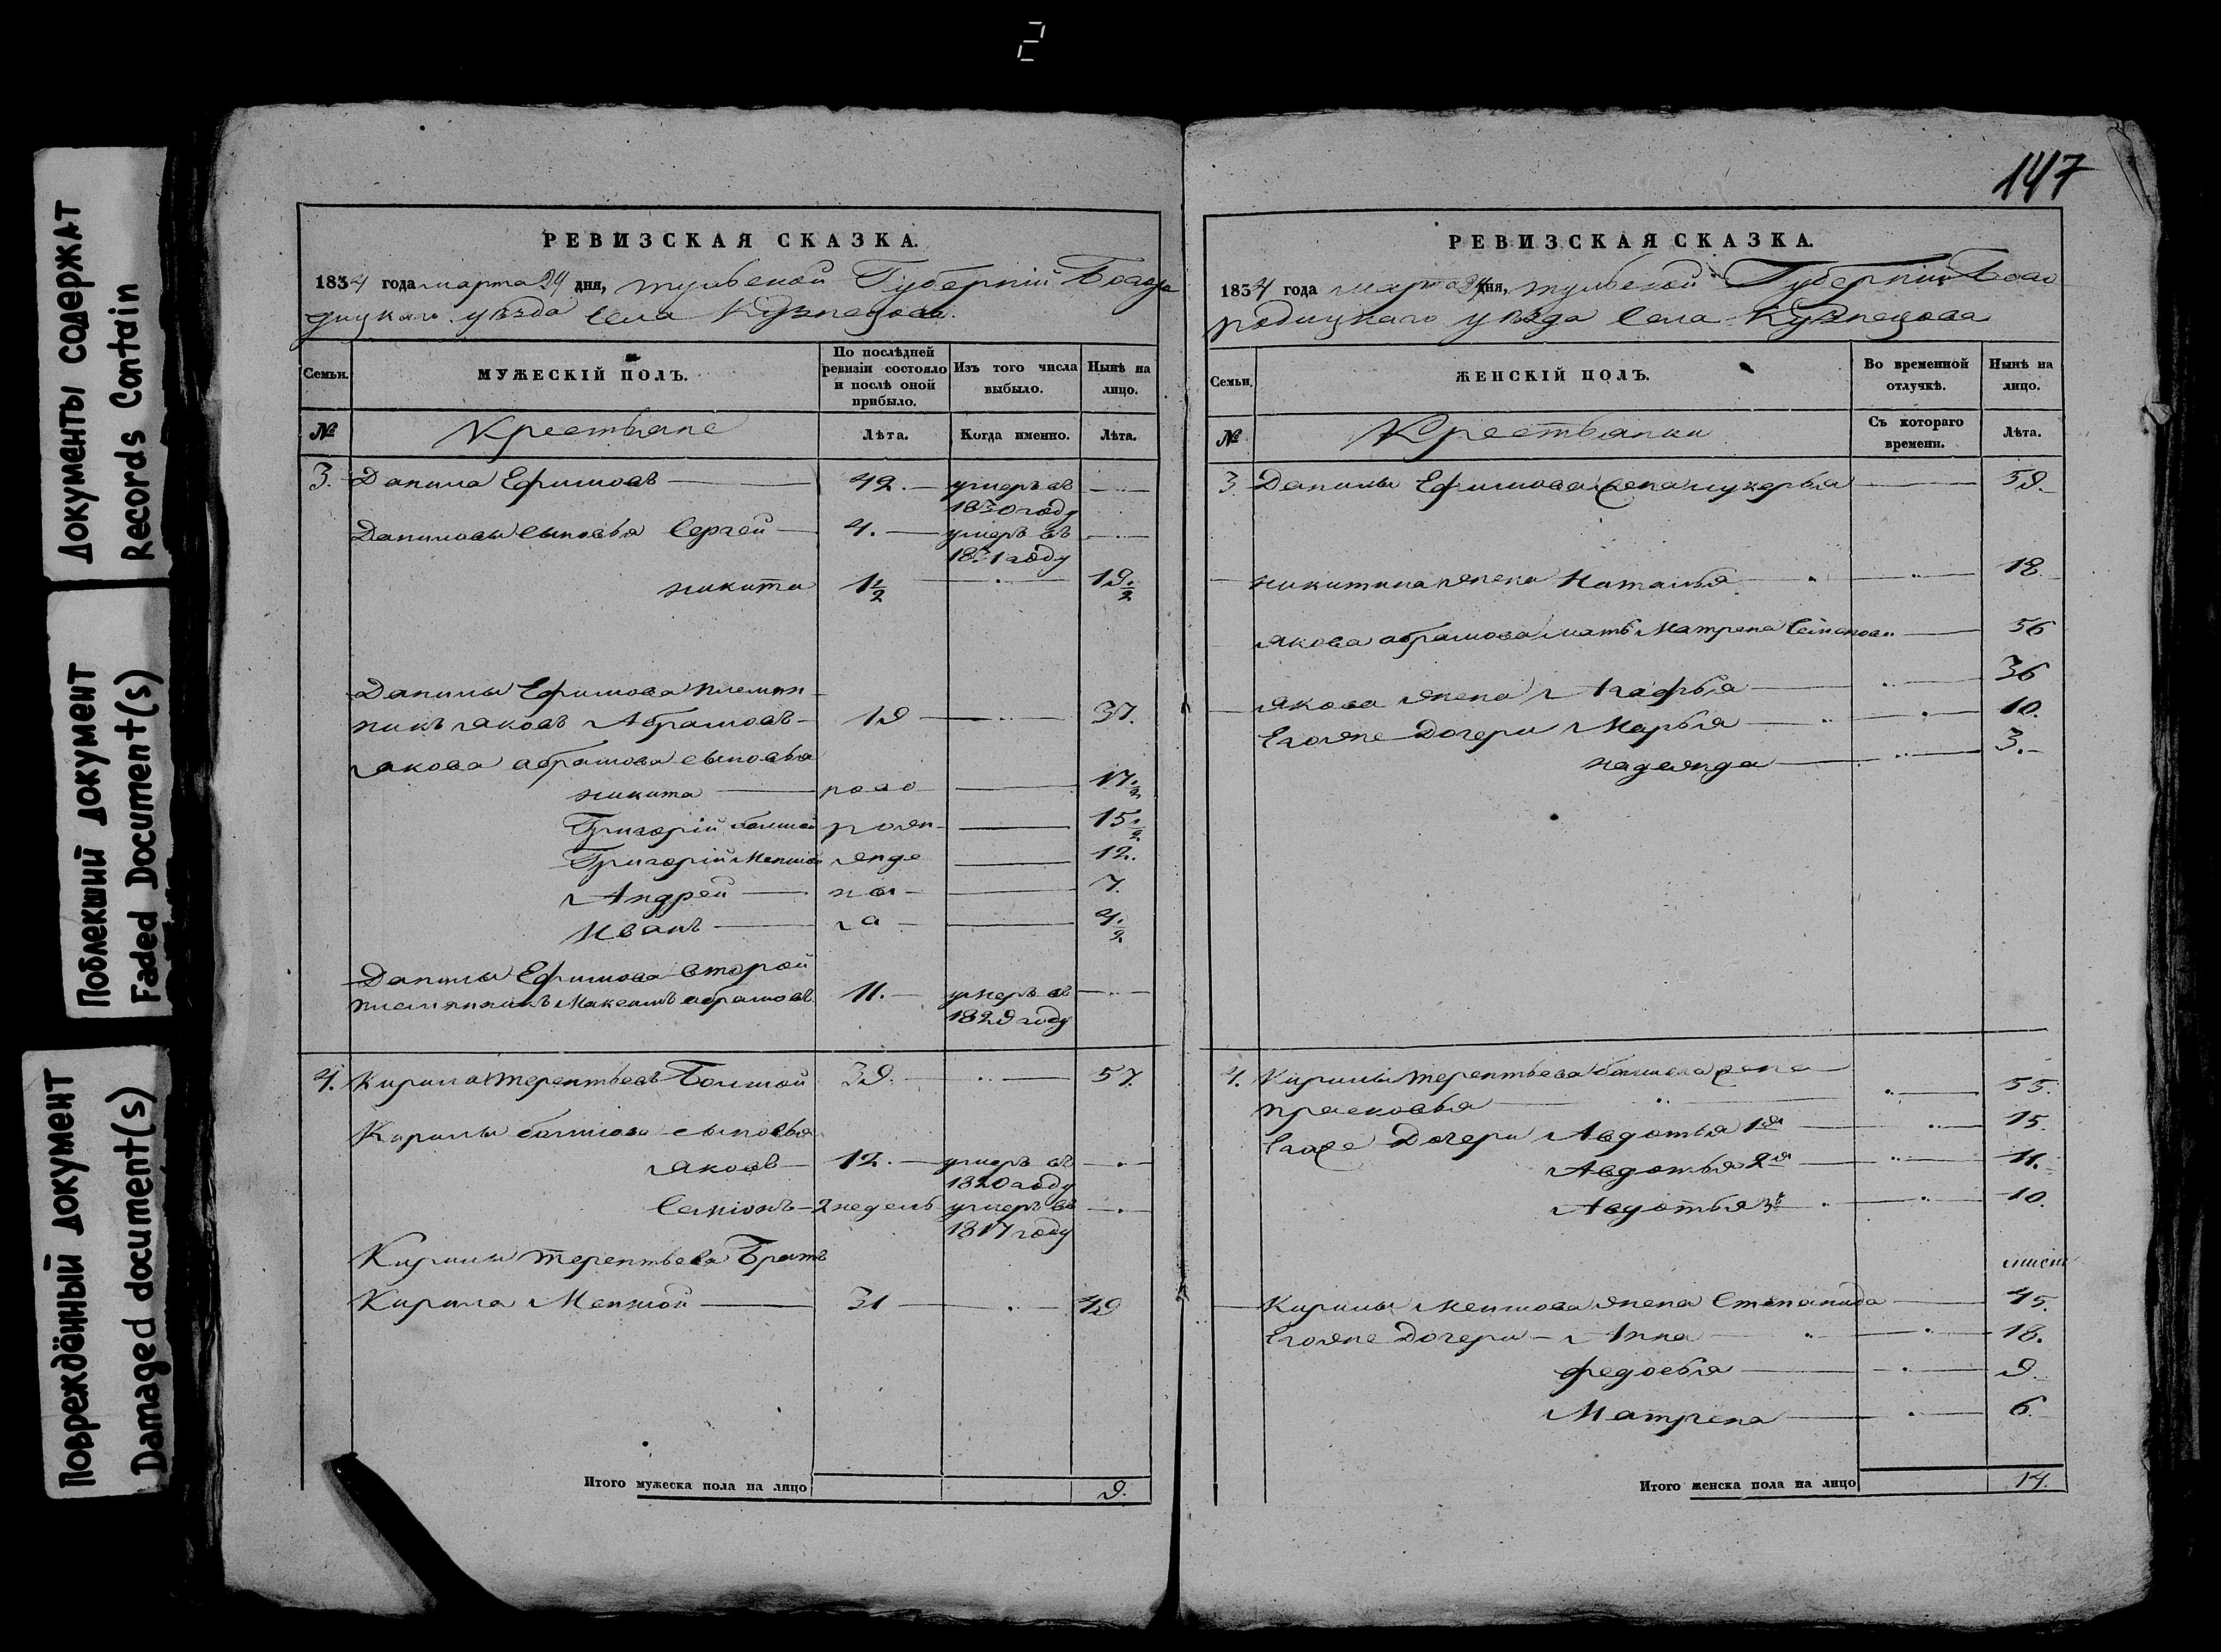 2
147
Документы содержат
Records Contain
Поблекший документ
Faded Document(s)
Повреждённый документ
Damaged document(s)
РЕВИЗСКАЯ СКАЗКА.
1834 года марта 24 дня, тульской Губерніи Богоро
дицкаго уѣзда села Кузнецова.
Семьи.
МУЖЕСКІЙ ПОЛЪ.
По послѣдней ревизіи состояло и послѣ оной прибыло.
Изъ того числа выбыло.
Нынѣ на лицо.
№
Крестьяне
Лѣта.
Когда именно.
Лѣта.
3. Данила Ефимовъ 42. умеръ въ
1830 году
Данилы сыновья Сергей 4. умеръ въ
1831 году
никита 1 1/2 19. 1/2
Данилы Ефимова племян
никъ яковъ Абрамовъ 19 37.
якова абрамова сыновья
никита ново 17. 1/2
Григорій болшой рожд 15 1/2
Григорій Меншой 12.
Андрей 7.
Иванъ га 4. 1/2
Данилы Ефимова второй
племянникъ Максимъ абрамовъ 11. умеръ въ
1829 году
4. Кирила терентьевъ Болшой 39. 57.
Кирилы болшова сыновья
яковъ 12. умеръ въ
1820 году
Семіонъ 2 недель умеръ въ
1817 году
Кирилы терентьева Братъ
Кирила Меншой 31 49
Итого мужеска пола на лицо 9.
РЕВИЗСКАЯ СКАЗКА.
1834 года марта 24 дня, тульской Губерніи Бого
родицкаго уѣзда села Кузнецова
Семьи.
ЖЕНСКІЙ ПОЛЪ.
Во временной отлучкѣ.
Нынѣ на лицо.
№
Крестьянки
Съ котораго времени.
Лѣта.
3. Данилы Ефимова жена лукерья 59.
никитина жена Наталья 18.
якова абрамова мать Матрена 56
якова жена Агафья 36
Егожне дочери Марья 10.
надежда 3.
4. Кирилы терентьева болшова жена
прасковья 55.
Егоже дочери Авдотья 1я 15.
Авдотья 2я 11.
Авдотья 3я 10.
Кирилы меншова жена Степанида 45.
Егожне дочери Анна 18.
федосья 9.
Матрена 6.
Итого женска пола на лицо 14.